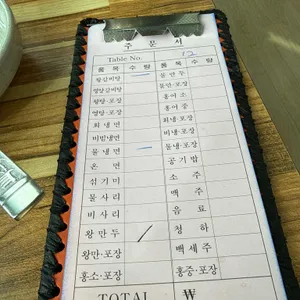 주 문 서
Table No. 12
품 목 수 량 품 목 수 량
왕갈비탕 물 만 두
영양갈비탕 물만·포장
왕탕·포장 홍어 소
영탕·포장 홍어 중
회 냉 면 회냉·포장
비빔냉면 비냉·포장
물 냉 면 물냉·포장
온 면 공 기 밥
섞 기 미 소 주
물 사 리 맥 주
비 사 리 음 료
왕 만 두 청 하
왕만·포장 백 세 주
홍소·포장 홍중·포장
TOTAL ₩